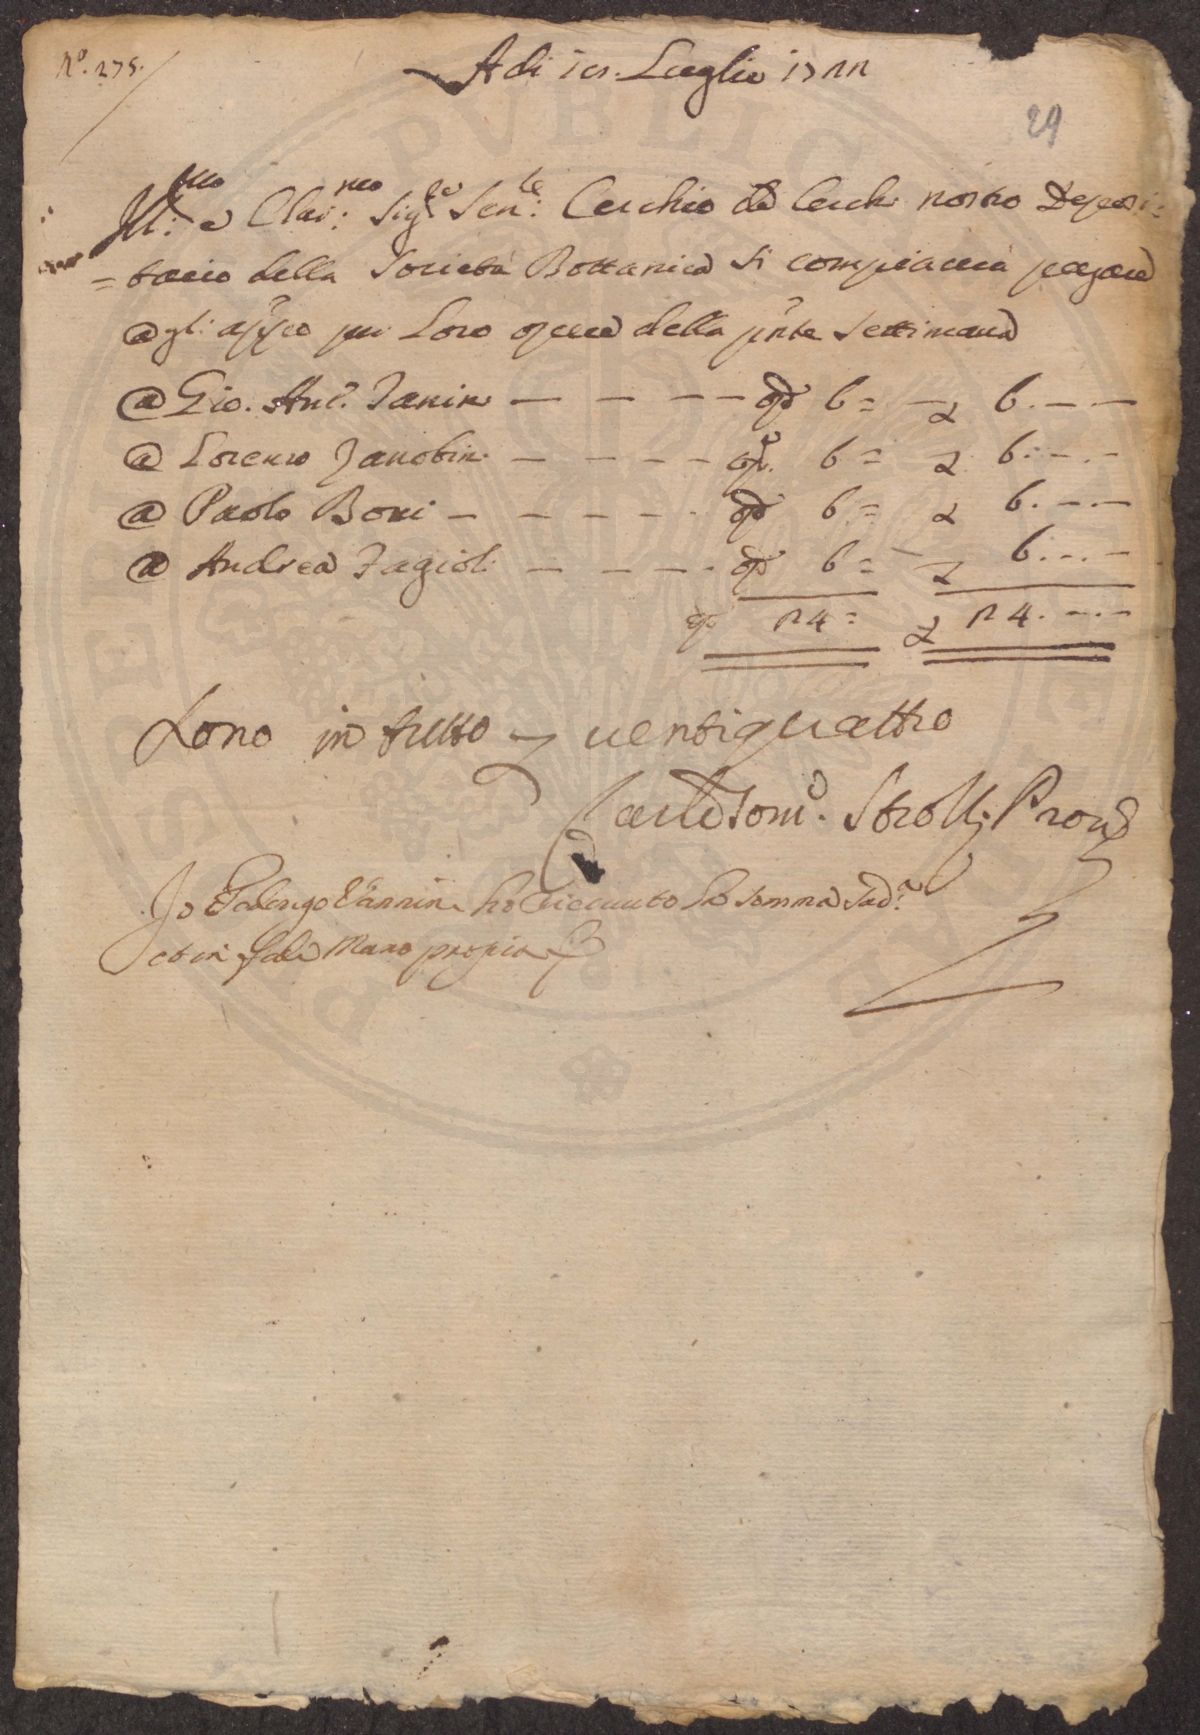 N.º 275.
Adi 10. Luglio 1722
29
Ill:mo e Clar:mo Sig:e Sen:te Cerchio de Cerchi nostro Deposi:
=tario della Società Bottanica si compiacerà pagare
@ gl: app.o per Loro opere della pñte Settimana
@ Gio. Ant.º Vanini — — — — op.e 6 = — £ 6. — . —
@ Lorenzo Zanobini — — — — op.e 6 = £ 6: — . —
@ Paolo Boni — — — — — op.e 6 = £ 6. — . —
@ Andrea Fagioli — — — — op.e 6 = — £ 6: — . —
op.e 24 = £ 24. — . —
Sono in tutto £ ventiquattro
Carlo Tom.º Strozzi Prov.e
Io Vannini ho riceuuto La Somma Sud.a
et in fede Mano propia
PVBLIC